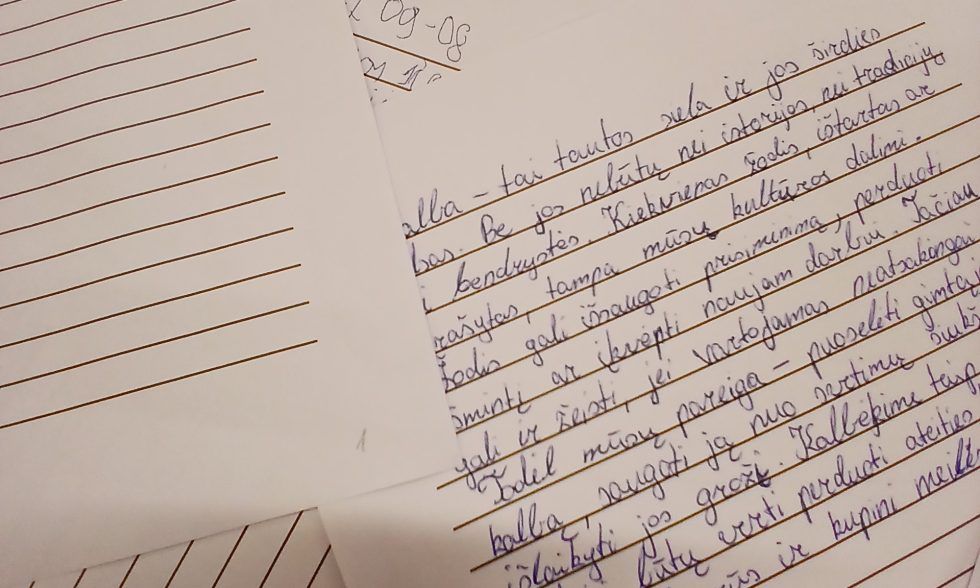 09-08
alba – tai tautos siela ir jos širdies
bas. Be jos nebūtų nei istorijos, nei tradicijų,
i bendrystės. Kiekvienas žodis, ištartas ar
rašytas, tampa mūsų kultūros dalimi.
žodis gali išsaugoti prisiminimą, perduoti
šmintį ar įkvėpti naujam darbui. Tačiau
gali ir žeisti, jei vartojamas neatsakingai
Todėl mūsų pareiga – puoselėti gimtąj
kalbą, saugoti ją nuo svetimų šiukš
išlaikyti jos grožį. Kalbėkime taisy
būtų verti perduoti ateities
ūs ir kupini meilės
1